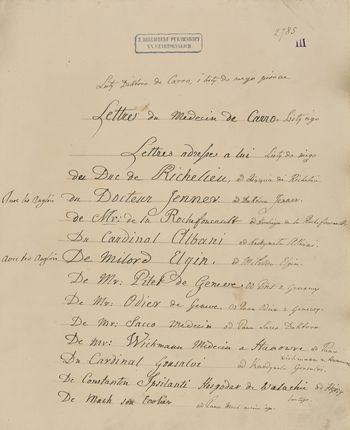 2785
Z BIBLIOTEKI PUŁAWSKIEJ
XX CZARTORYSKICH
III
Listy Doktora de Carro, i listy do niego pisane
Lettres du Medecin de Carro. Listy jego
Lettres adressées a lui Listy do niego
du Duc de Richelieu, od Xięcia de Richelieu
du Docteur Jenner od Doktora Jenner.
de Mr: de la Rochefoucault
Du Cardinal Albani od Kardynała Albani.
avec les Anglais De milord Elgin, od Milorda Elgin.
De Mr. Pitet de Geneve, od Pitet z Genewy
De Mr. Odier de Geneve, od Pana Odier z Genewy.
De Mr: Sacco Medecin od Pana Sacco Doktora
De mr: Wichmann Medecin a Hanovre od Pana
Wichmann z Hanoweru
Du Cardinal Gonsalvi od Kardynała Gonsalvi.
De Constantin Ipsilanti Hospodar de Valachie od
De Mash son Ecolier od Pana Mash ucznia jego.